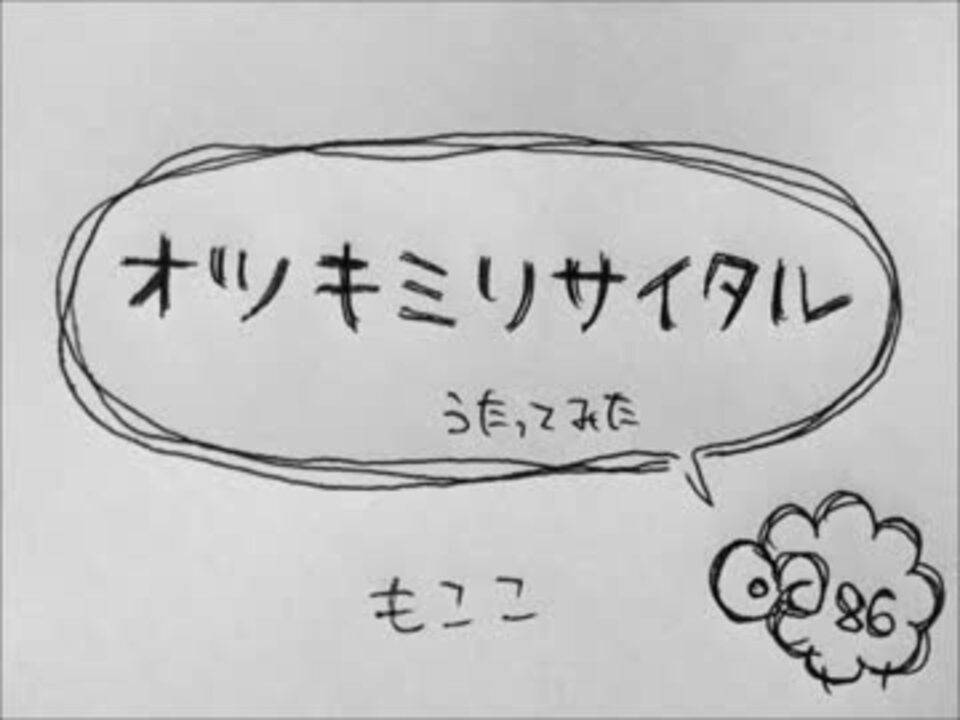 オツキミリサイタル
うたってみた
もここ
86